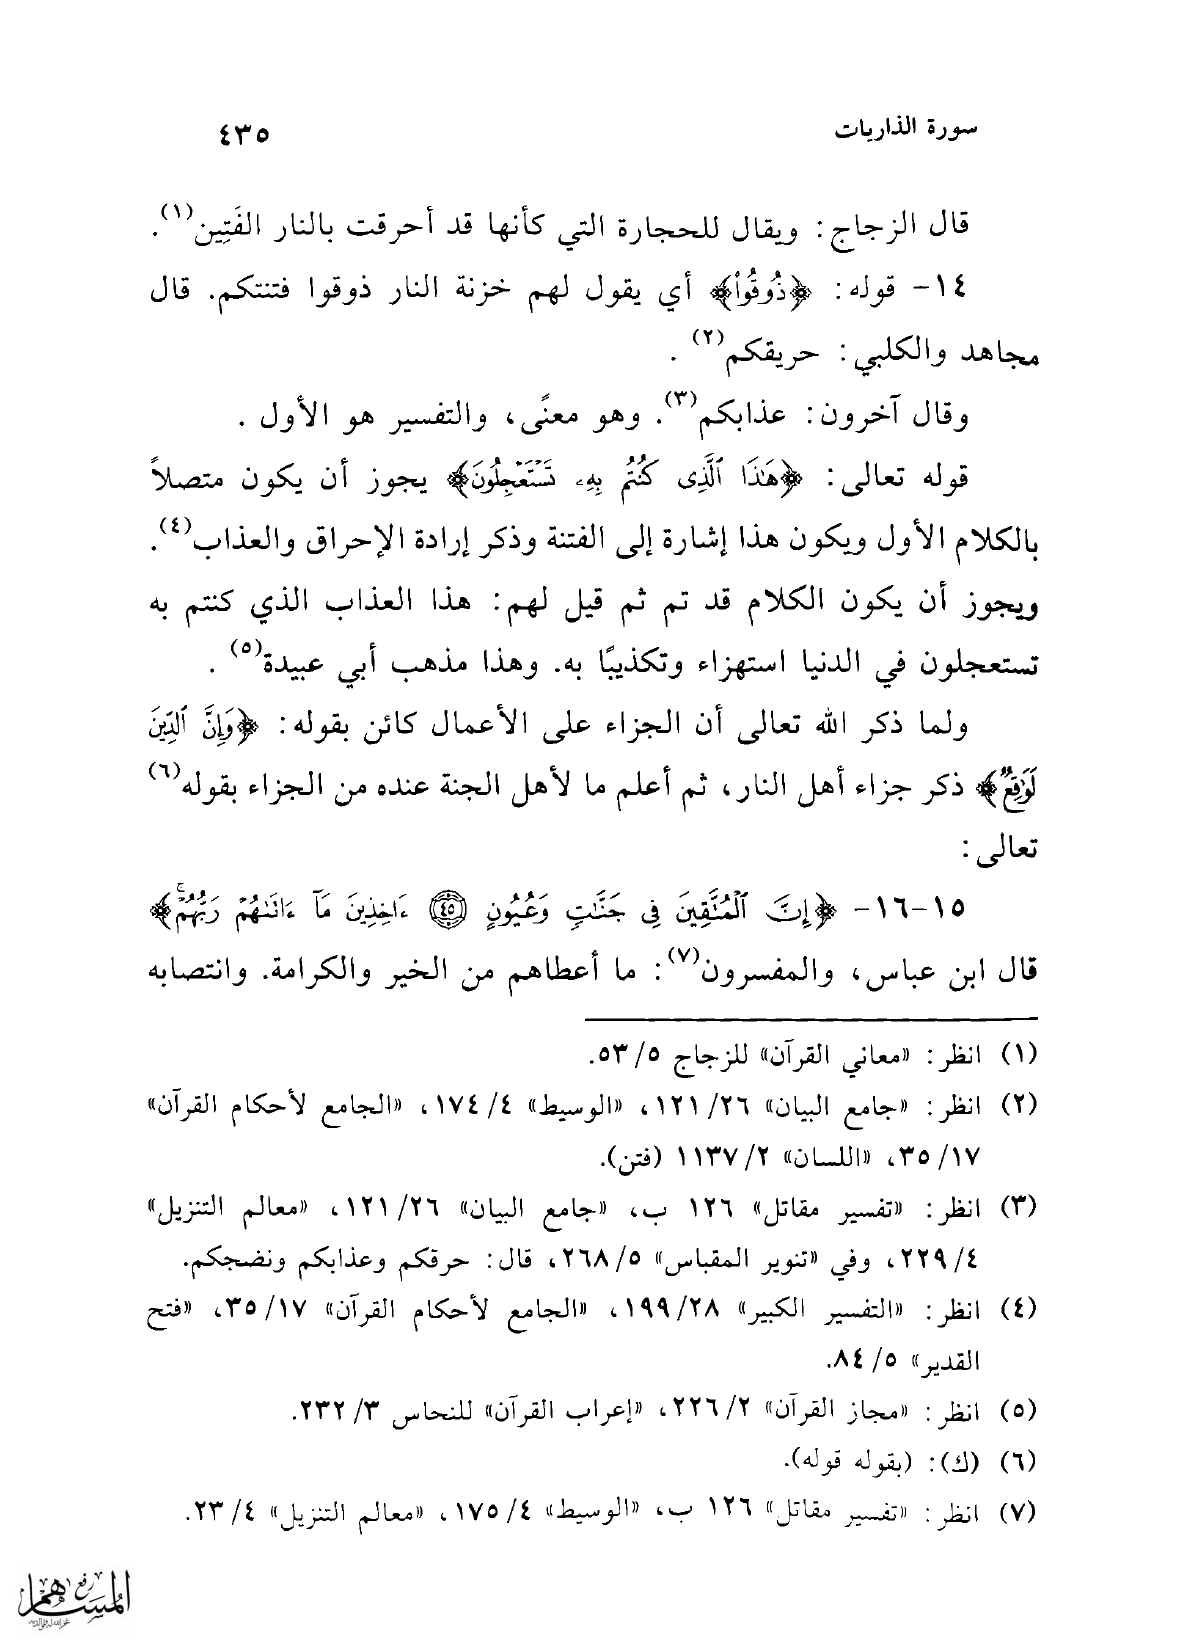 سورة الذاريات
٤٣٥
قال الزجاج: ويقال للحجارة التي كأنها قد أحرقت بالنار الفَتِين(١).
١٤- قوله: ﴿ذُوقُواْ﴾ أي يقول لهم خزنة النار ذوقوا فتنتكم. قال
مجاهد والكلبي: حريقكم(٢) .
وقال آخرون: عذابكم(٣). وهو معنًى، والتفسير هو الأول .
قوله تعالى: ﴿هَٰذَا ٱلَّذِى كُنتُم بِهِۦ تَسْتَعْجِلُونَ﴾ يجوز أن يكون متصلاً
بالكلام الأول ويكون هذا إشارة إلى الفتنة وذكر إرادة الإحراق والعذاب(٤).
ويجوز أن يكون الكلام قد تم ثم قيل لهم: هذا العذاب الذي كنتم به
تستعجلون في الدنيا استهزاء وتكذيبًا به. وهذا مذهب أبي عبيدة(٥) .
ولما ذكر الله تعالى أن الجزاء على الأعمال كائن بقوله: ﴿وَإِنَّ ٱلدِّينَ
لَوَٰقِعٌ﴾ ذكر جزاء أهل النار، ثم أعلم ما لأهل الجنة عنده من الجزاء بقوله(٦)
تعالى:
١٥-١٦- ﴿إِنَّ ٱلْمُتَّقِينَ فِى جَنَّٰتٍ وَعُيُونٍ ٤٥ ءَاخِذِينَ مَآ ءَاتَىٰهُمْ رَبُّهُمْ ۚ﴾
قال ابن عباس، والمفسرون(٧): ما أعطاهم من الخير والكرامة. وانتصابه
(١) انظر: «معاني القرآن» للزجاج ٥/ ٥٣.
(٢) انظر: «جامع البيان» ٢٦/ ١٢١، «الوسيط» ٤/ ١٧٤، «الجامع لأحكام القرآن»
١٧/ ٣٥، «اللسان» ٢/ ١١٣٧ (فتن).
(٣) انظر: «تفسير مقاتل» ١٢٦ ب، «جامع البيان» ٢٦/ ١٢١، «معالم التنزيل»
٤/ ٢٢٩، وفي «تنوير المقباس» ٥/ ٢٦٨، قال: حرقكم وعذابكم ونضجكم.
(٤) انظر: «التفسير الكبير» ٢٨/ ١٩٩، «الجامع لأحكام القرآن» ١٧/ ٣٥، «فتح
القدير» ٥/ ٨٤.
(٥) انظر: «مجاز القرآن» ٢/ ٢٢٦، «إعراب القرآن» للنحاس ٣/ ٢٣٢.
(٦) (ك): (بقوله قوله).
(٧) انظر: «تفسير مقاتل» ١٢٦ ب، «الوسيط» ٤/ ١٧٥، «معالم التنزيل» ٤/ ٢٣.